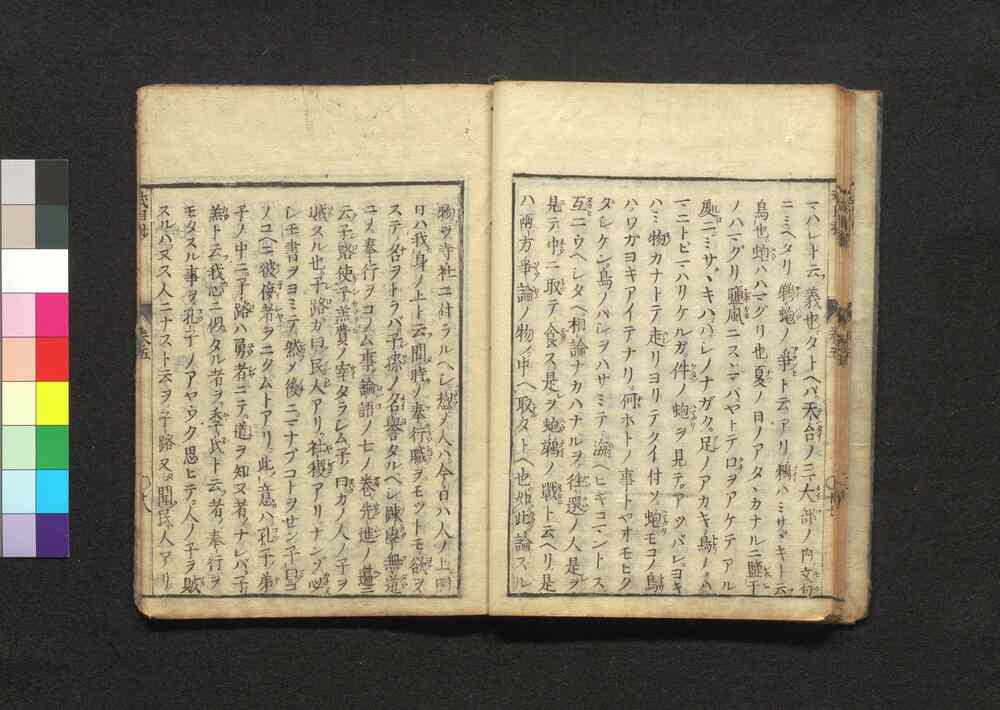 マハレト云義也タトヘバ天台ノ三大部ノ内文句
ニミヘタリ鷸蚫ノ爭ト云アリ鷸ハミサヾキト云
鳥也蚫ハハマグリ也夏ノ日ノアタヽカナルニ鹽干
ノハマグリ鹽風ニスヾマバヤトテロヲアケテアル
處ニミサヾキハハシノナガク足ノアカキ鳥ノハ
マニトビマハリケルガ件ノ蚫ヲ見テアツパレヨキ
ハミ物カナトテ走リヨリテクイ付ソ蚫モコノ鳥
ハワガヨキアイテナリ何ホトノ事トヤオモヒケ
タレケン鳥ノハシヲハサミテ海ヘヒキコマントス
互ニウヘシタヘ相論ナカハナルヲ往還ノ人是ヲ
見テ中ニ取テ食ス是ヲ蚫鷸ノ戰ト云ヘリ是
ハ兩方爭論ノ物ノ中ヘ取タトヘ也如此論スル
物ヲ寺社ニ付ラルヘシ惣ノ人ハ今日ハ人ノ上明
日ハ我身ノ上ト云間時ノ奉行職ヲモツトモ欲ヲ
ステ名ヲトラバ子孫ノ名譽タルヘシ陳＿無道
ニノ奉行ヲコノム事論語ノ七ノ卷先進ノ篇ニ
云子路使子羔費ノ宰タラシム子曰カノ人ノ子ヲ
賊スル也子路ガ曰民人アリ社稷アリナンゾ必
シモ書ヲヨミテ然メ後ニマナブコトヲせン子曰コ
ノユヘニ彼佞者ヲニクムトアリ此意ハ孔子ノ弟
子ノ中ニ子路ハ勇者ニテ道ヲ知又者ノナレバ子
羔ト云我心ニ似タル者ヲ季氏ト云者ノ奉行ヲ
モタスル事ヲ孔子ノアヤウク思ヒテ人ノ子ヲ賊
スルハ又ス人ニナスト云ヲ子路又聞民人アリ